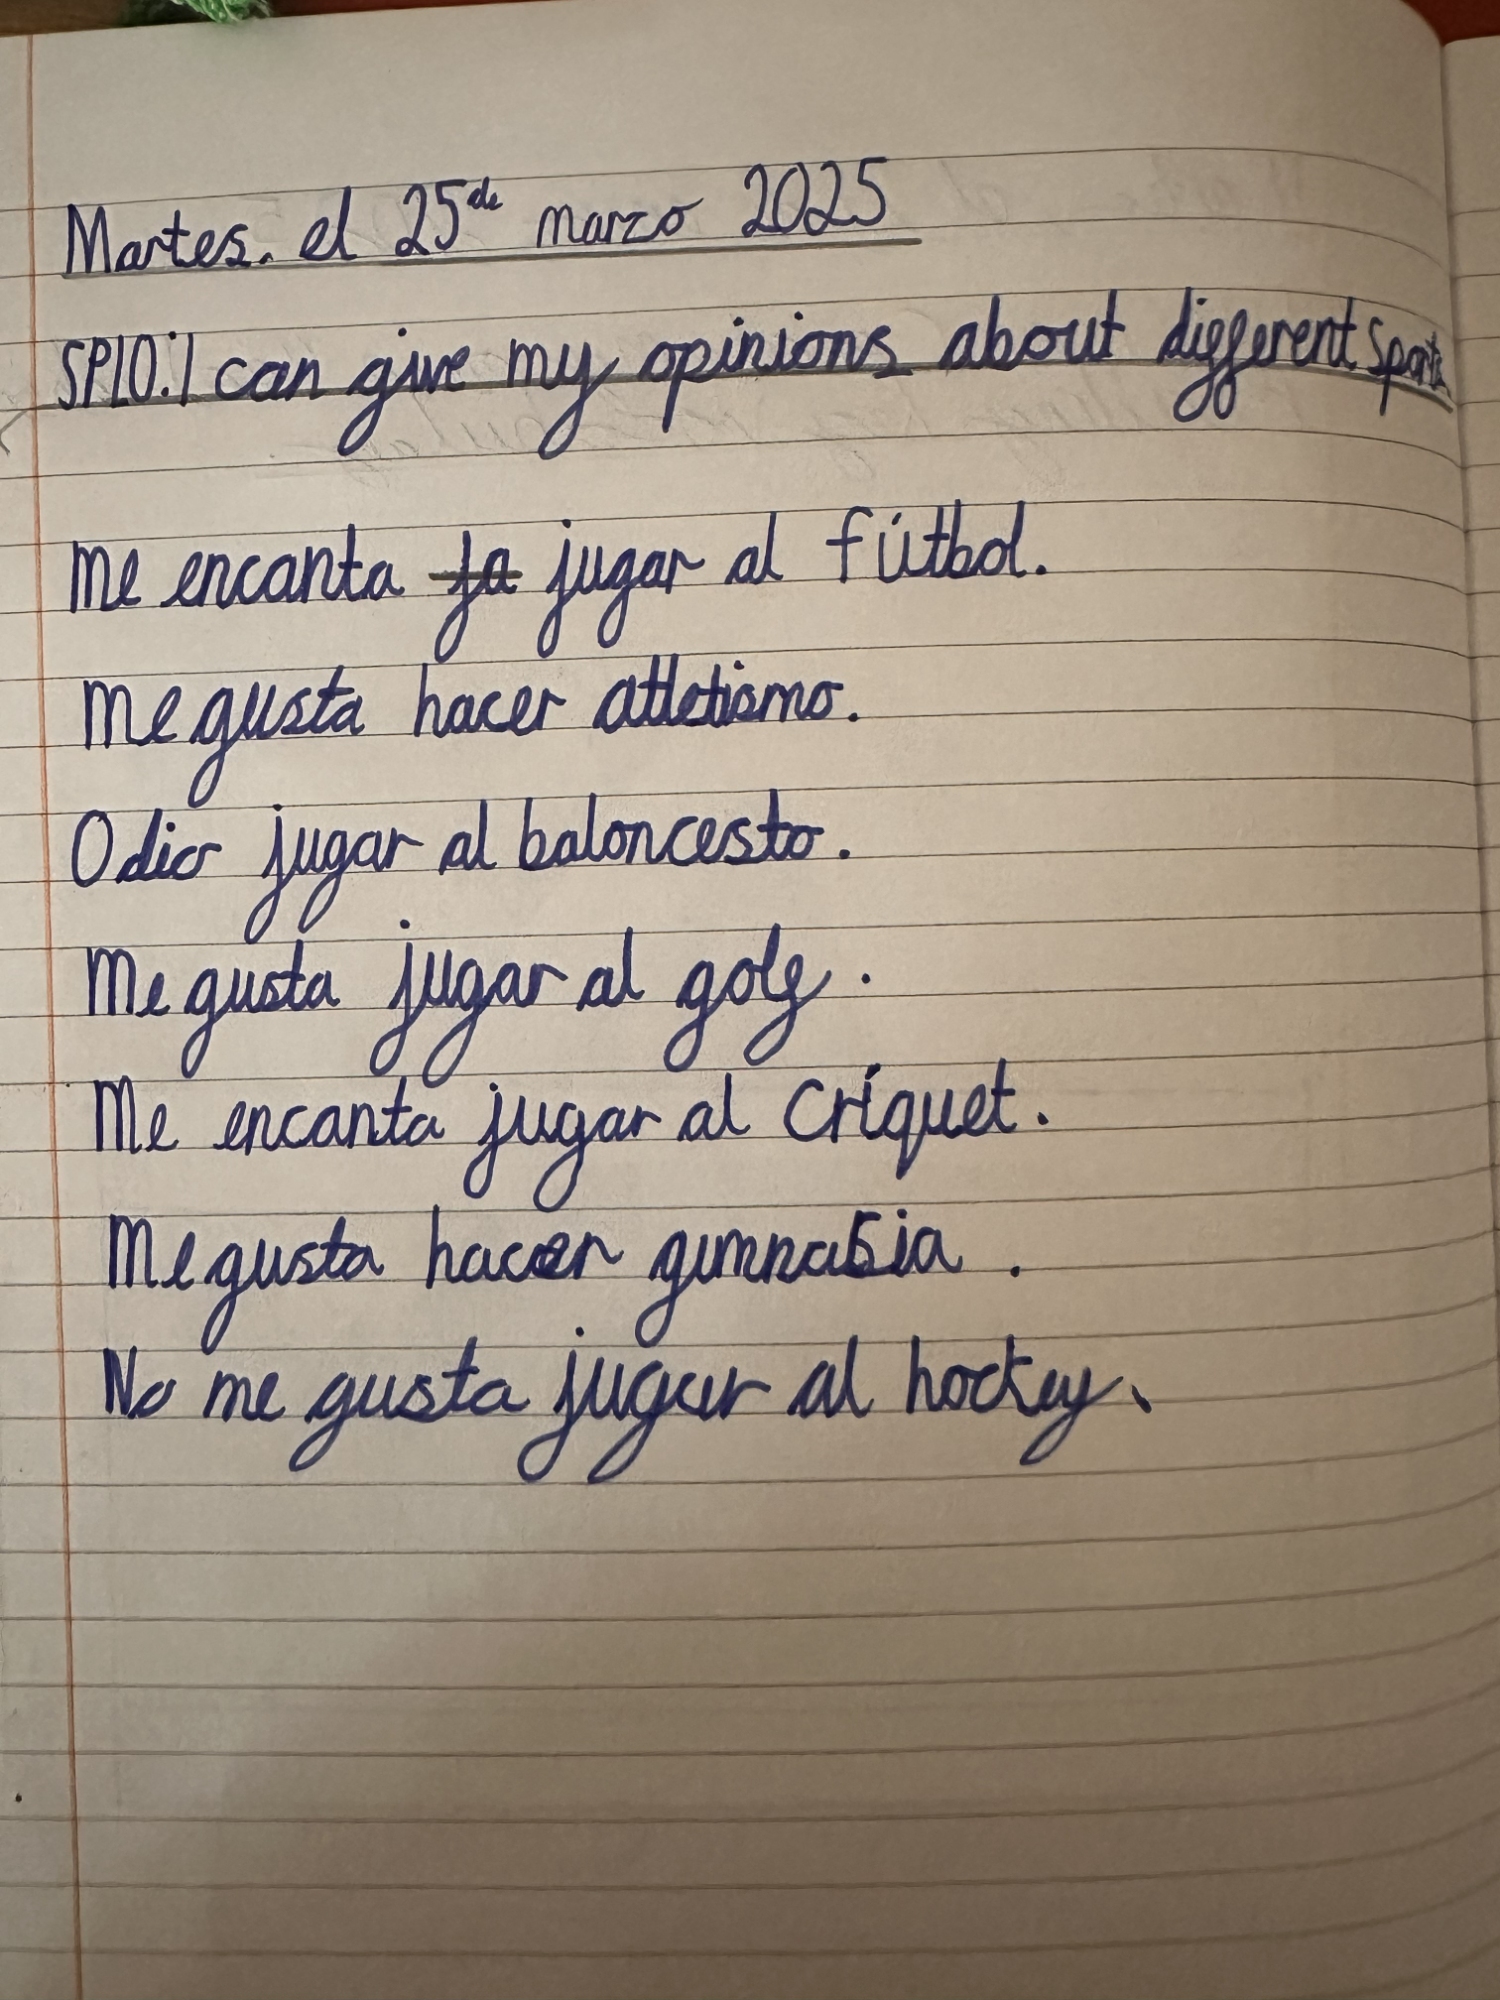 Martes. el 25de marzo 2025
SPLO: I can give my opinions about different Sports
Me encanta ja jugar al fútbol.
Me gusta hacer atletismo.
Odio jugar al baloncesto.
Me gusta jugar al golf.
Me encanta jugar al críquet.
Me gusta hacer gimnasia.
No me gusta jugar al hockey.